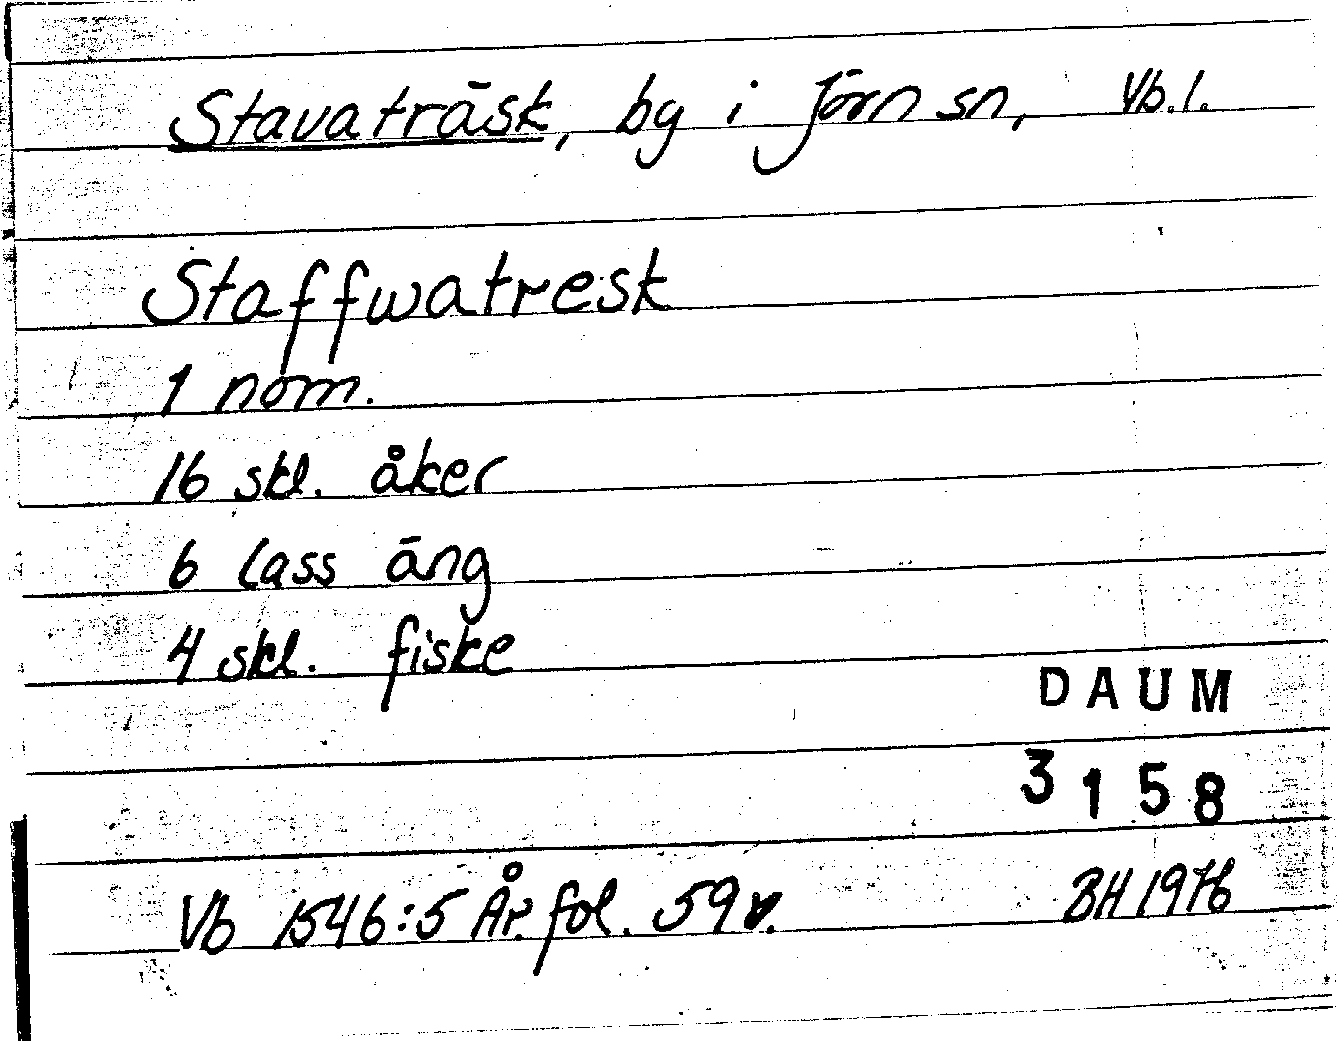 Stavaträsk, by i Jörn sn, Vb.l.
Staffwatresk
1 nom.
16 skl. åker
6 lass äng
4 skl. fiske
DAUM
3158
Vb 1546:5 År. fol. 59v. BH 1976